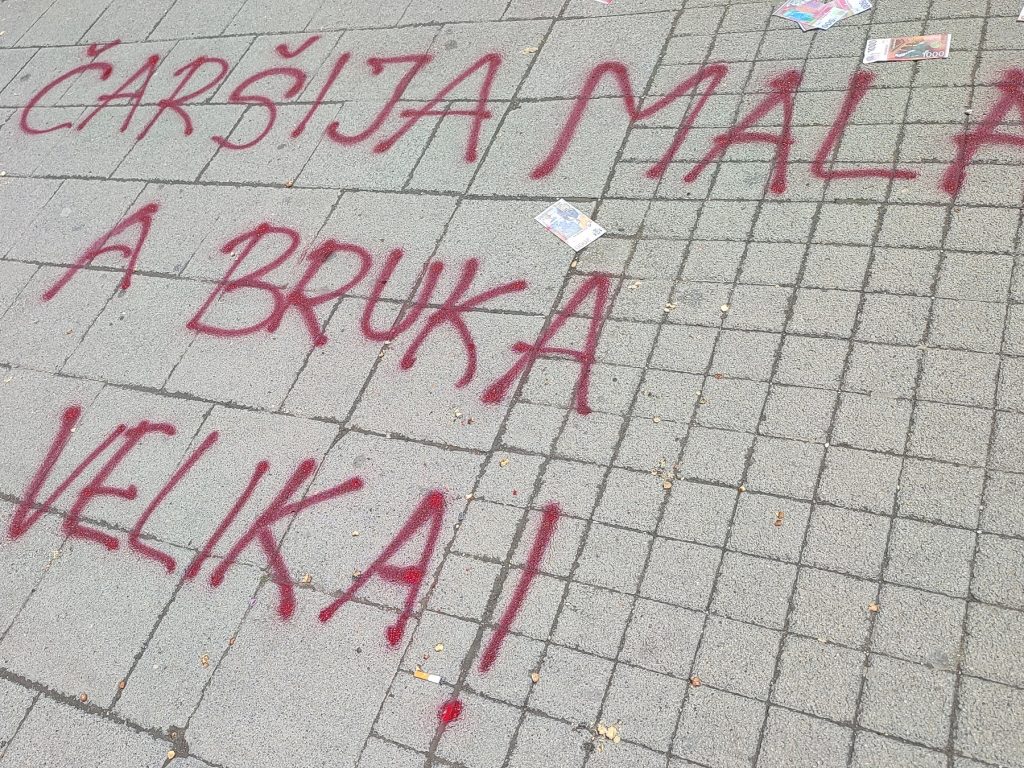 ČARŠIJA MALA
A BRUKA
VELIKA!
1000